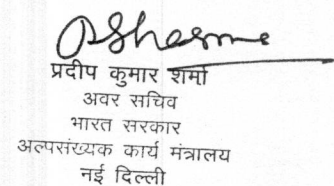 प्रदीप कुमार शर्मा
अवर सचिव
भारत सरकार
अल्पसंख्यक कार्य मंत्रालय
नई दिल्ली